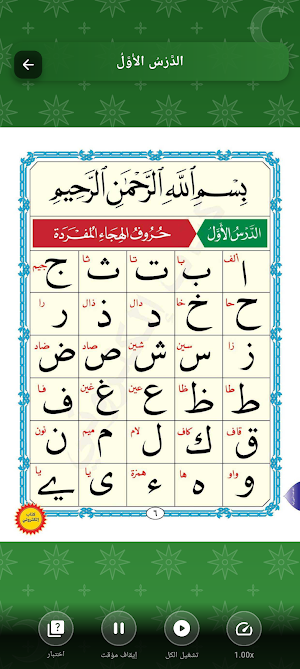 الدَّرْسُ الأَوَّلُ
بِسْمِ اللَّهِ الرَّحْمَٰنِ الرَّحِيمِ
الدَّرْسُ الأَوَّلُ حُرُوفُ الهِجَاءِ المُفْرَدَة
ألف با تا ثا جيم
ا ب ت ث ج
حا خا دال ذال را
ح خ د ذ ر
زا سين شين صاد ضاد
ز س ش ص ض
طا ظا عين غين فا
ط ظ ع غ ف
قاف كاف لام ميم نون
ق ك ل م ن
واو ها همزة يا يا
و ه ء ى ے
٦
كتاب
إلكتروني
اختبار إيقاف مؤقت تشغيل الكل 1.00x